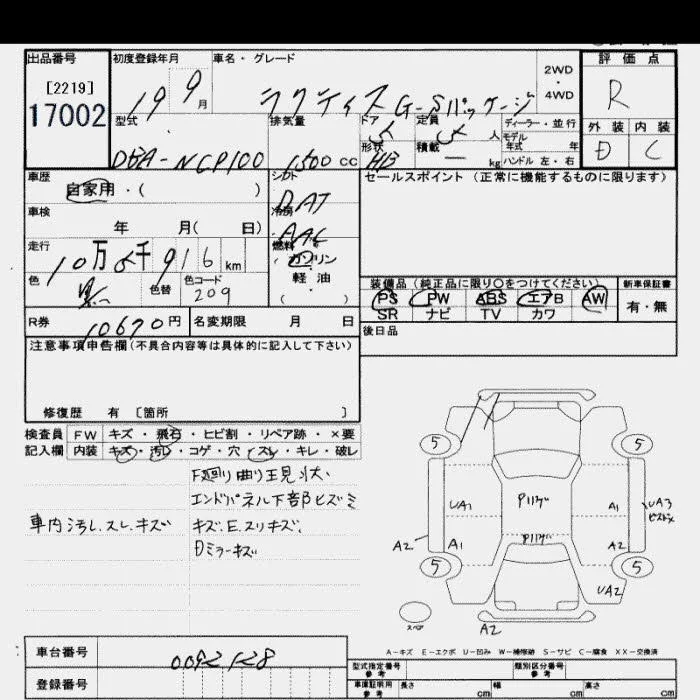 出品番号
[2219]
17002
初度登録年月
19 9月
車名・グレード
ラクティス G-Sパッケージ
2WD
・
4WD
評価点
R
外装 内装
D C
型式
DBA-NCP100
排気量
1500 cc
ドア
5
形状
HB
定員
5 人
積載
― kg
ディーラー・並行
モデル
年式 年
ハンドル 左・右
車歴
自家用・( )
シフト
DAT
冷房
AAC
燃料
ガソリン
軽・油
( )
車検
年 月( 日)
走行
10万5千916km
色
色替
色コード
209
R券
10670円
名変期限 月 日
セールスポイント (正常に機能するものに限ります)
装備品(純正品に限り○をつけてください)
新車保証書
PS PW ABS エアB AW
SR ナビ TV カワ
有・無
後日品
注意事項申告欄(不具合内容等は具体的に記入して下さい)
修復歴 有 〔箇所 〕
検査員
記入欄
FW キズ・飛石・ヒビ割・リペア跡・×要
内装 キズ・汚レ・コゲ・穴・スレ・キレ・破レ
F廻り曲り王見状、
エンドパネル下部ヒズミ
車内汚レ.スレ.キズ
キズ.E.スリキズ、
Dミラーキズ
5 5
UA1 P117ゲ A1 UA3
A2 A1 P117ゲ A2
5 5
UA2
スペア
A2
A-キズ E-エクボ U-凹み W-補修跡 S-サビ C-腐食 XX-交換済
車台番号
0092128
登録番号
型式指定番号
参考
類別区分番号
参考
車庫証明用
参考
長さ cm 幅 cm 高さ cm